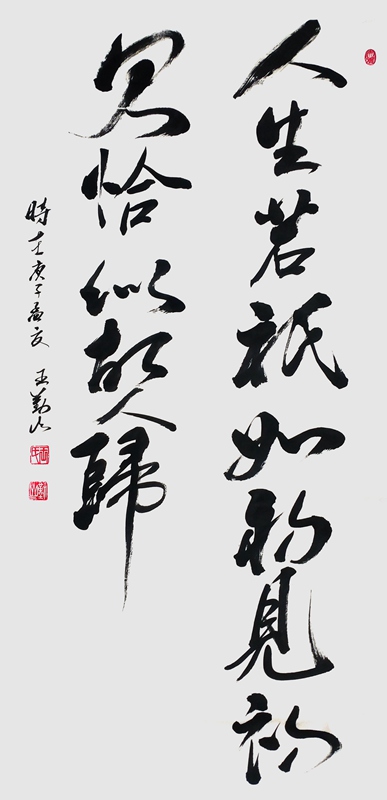 人生若祇如初見初
見恰似故人歸
時在庚子孟夏 王勤山